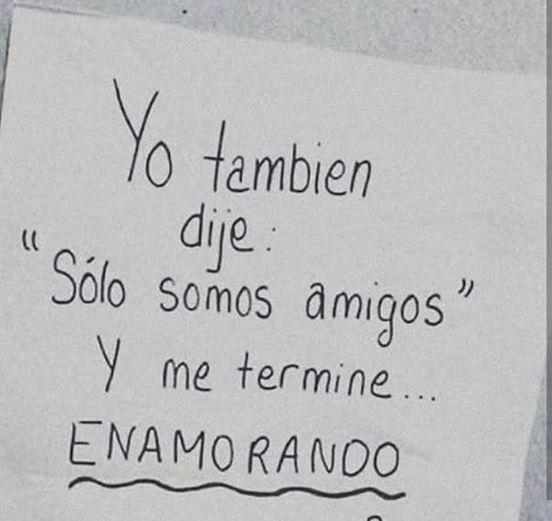 Yo tambien
dije:
"Sólo somos amigos"
Y me termine...
ENAMORANDO